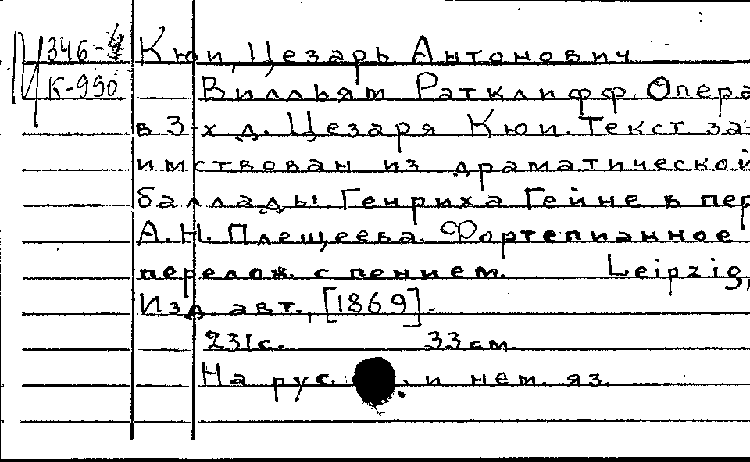 346-4
К-990
Кюи, Цезарь Антонович
Вилльям Ратклифф. Опера
в 3-х д. Цезаря Кюи. Текст за-
имствован из драматической
баллады Генриха Гейне в пер
А.Н. Плещеева. Фортепианное
перелож. с пением. Leipzig,
Изд. авт., [1869].
231с. 33см
На рус. и нем. яз.